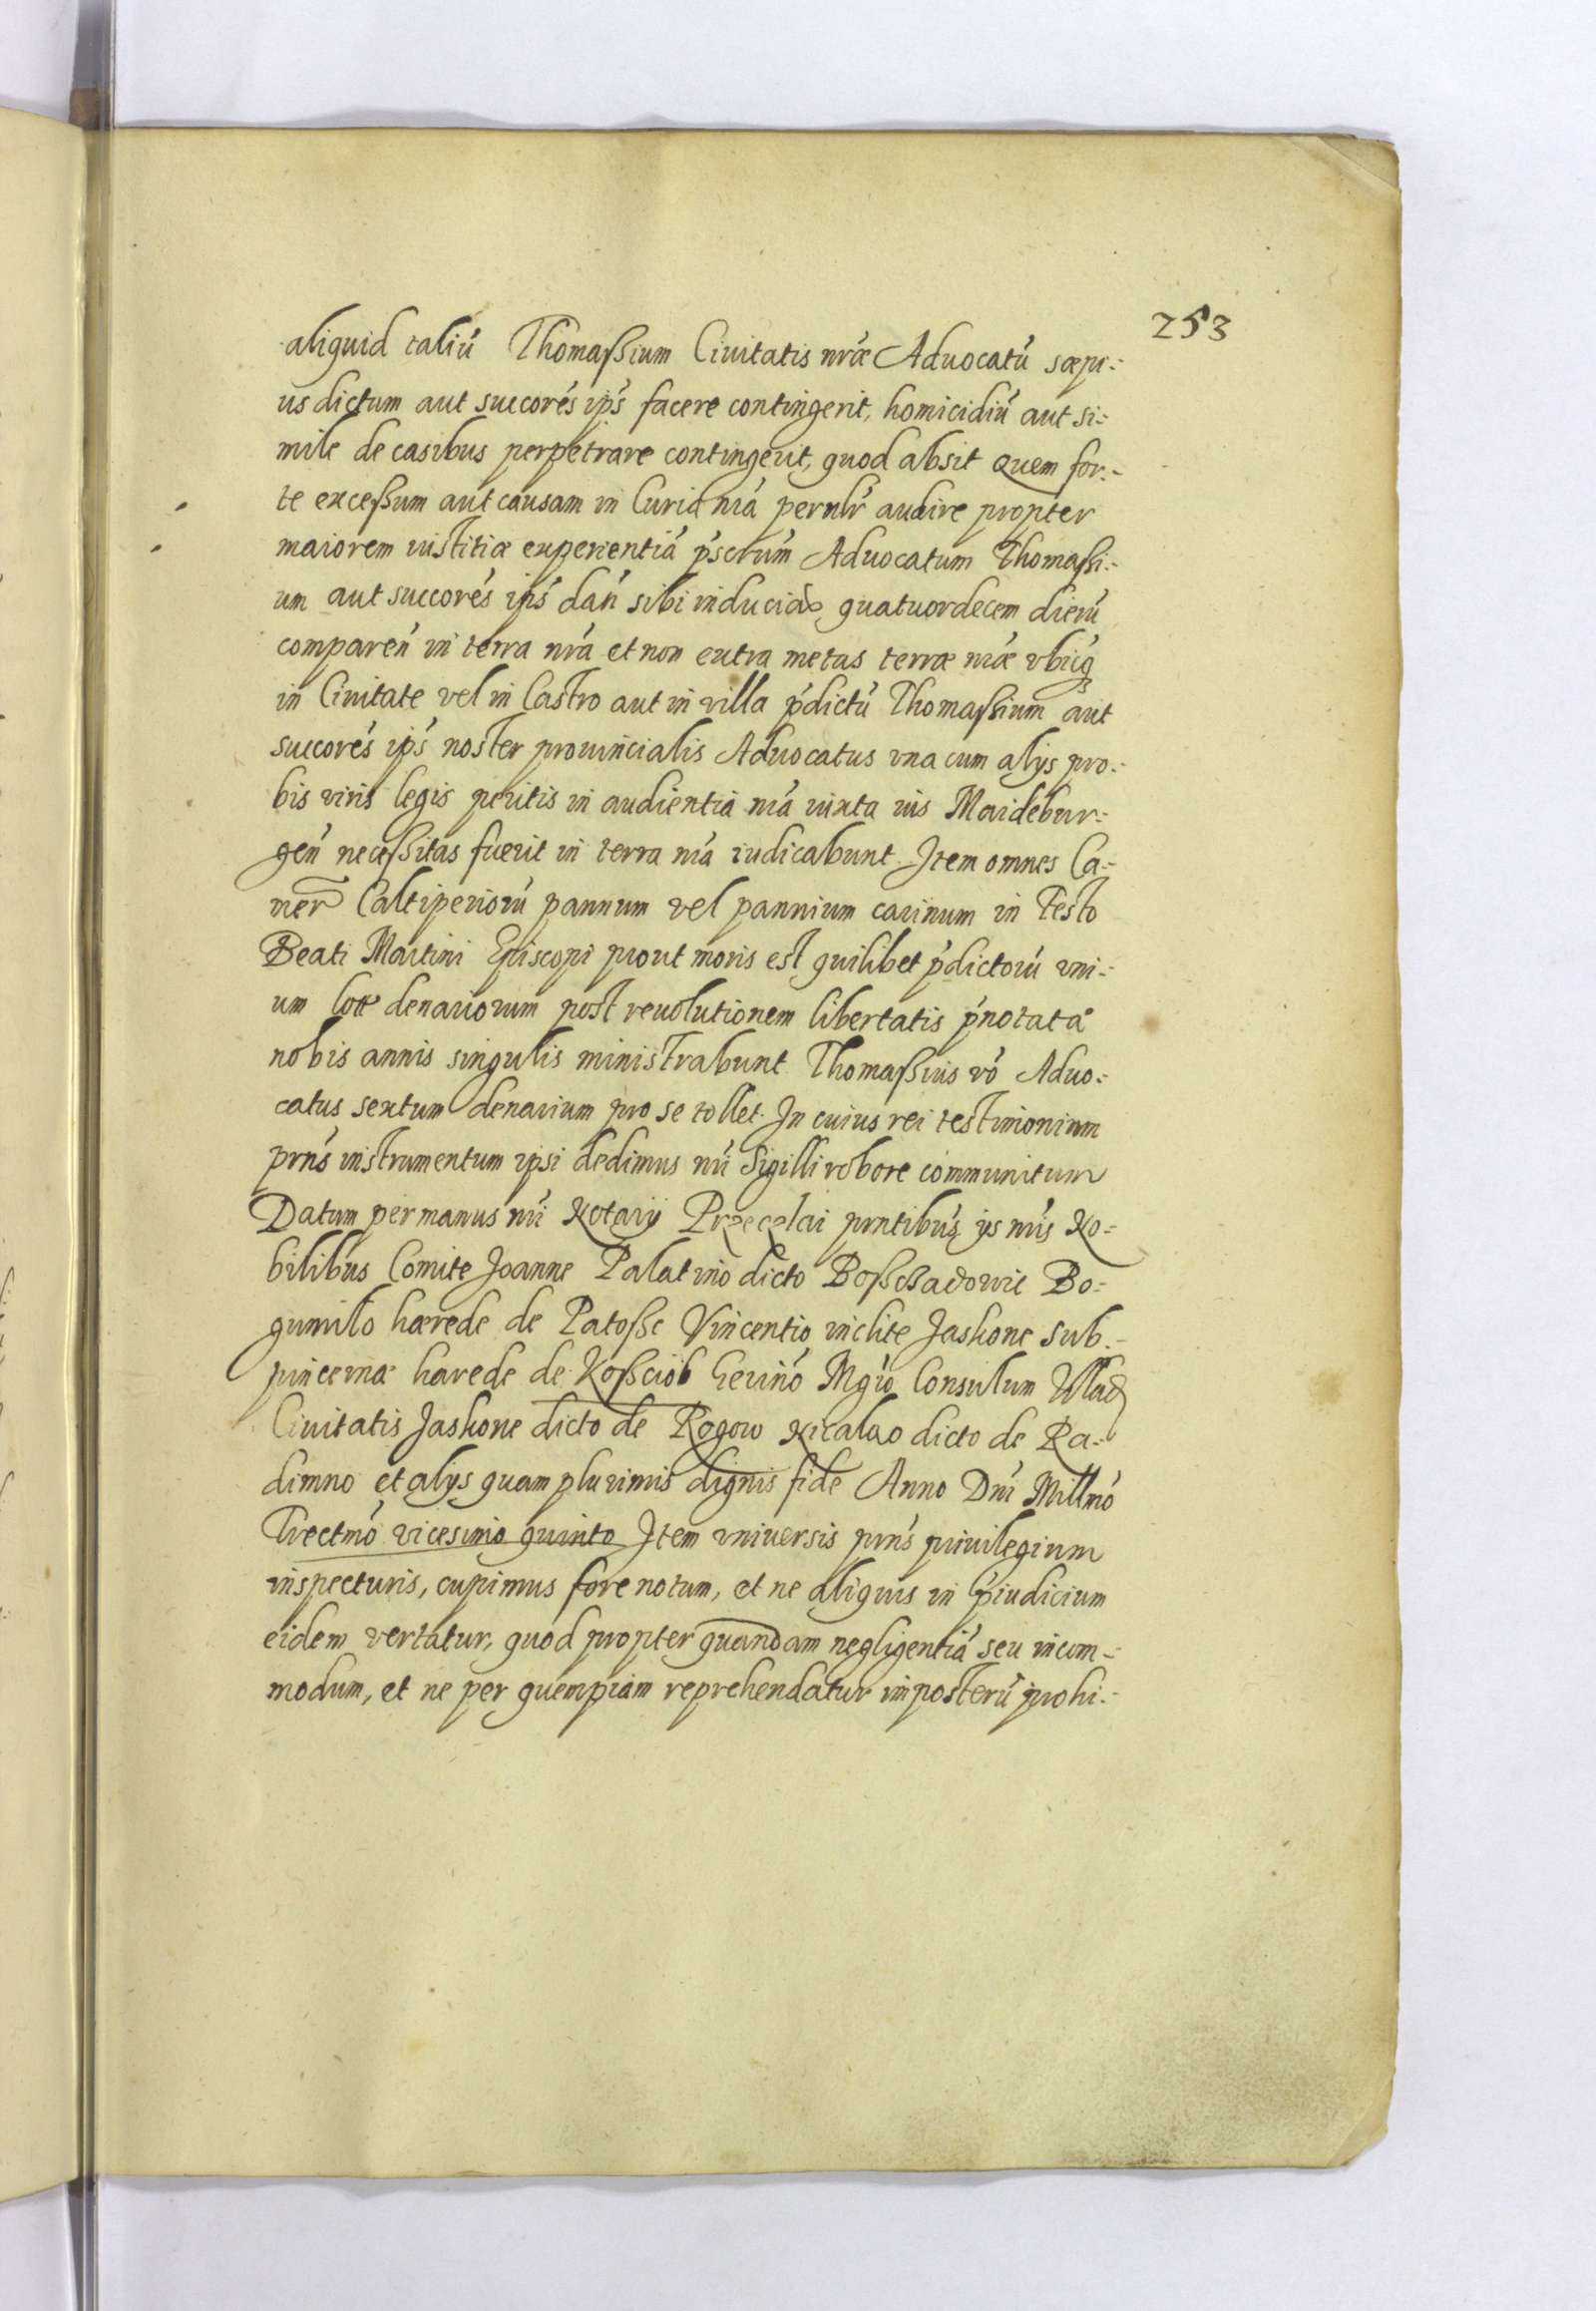 253
aliquid taliú Thomaßium Ciuitatis nrǽ Aduocatú sæpi-:
us dictum aut succorés ipś facere contingerit, homicidiú aut si-:
mile de casibus perpetrare contingerit, quod absit quem for-:
te exceßum aut causam in Curia nrá pernlr audire propter
maiorem iustitiæ experientiá ṕsctúm Aduocatum Thomaßi-:
um aut succorés ipś dań sibi inducias quatuordecem dierú
compareń in terra nrá et non extra metas terræ nrǽ vbiq́
in Ciuitate vel in Castro aut in villa ṕdictú Thomaßium aut
succorés ipś noster prouincialis Aduocatus vna cum alys pro-:
bis viris legis peritis in audientia nrá iuxta ius Maidebur-:
geń neceßitas fuerit in terra nrá iudicabunt. Item omnes Ca-:
ner Caltiperiorú pannum vel pannium carinum in Festo
Beati Martini Episcopi prout moris est quilibet ṕdictorú vni-:
um lott denariorum post reuolutionem libertatis ṕnotatá
nobis annis singulis ministrabunt. Thomaßius vó Aduo-:
catus sextum denarium pro se tollet. In cuius rei testimonium
prńs instrumentum ipsi dedimus nrí Sigilli robore communitum
Datum per manus nrí Notarij Przeczlai prntibúq ys nrís No-:
bilibus Comite Joanne Palatino dicto Boßczadowic Bo-:
gumilo hærede de Patoßc Vincentio inclite Jaskone sub-:
pincernæ hærede de Koßciol herinó Mgró Consulum Wlad
Ciuitatis Jaskone dicto de Rogow Nicalao dicto de Ra-:
dimno et alys quam plurimis dignis fide Anno Dní Millnó
Trectmó vicesimo quinto Item vniuersis prńs priuilegium
inspecturis, cupimus fore notum, et ne aliquis in ṕiudicium
eidem vertatur, quod propter quandam negligentiá seu incom-:
modum, et ne per quempiam reprehendatur imposterú prohi-: